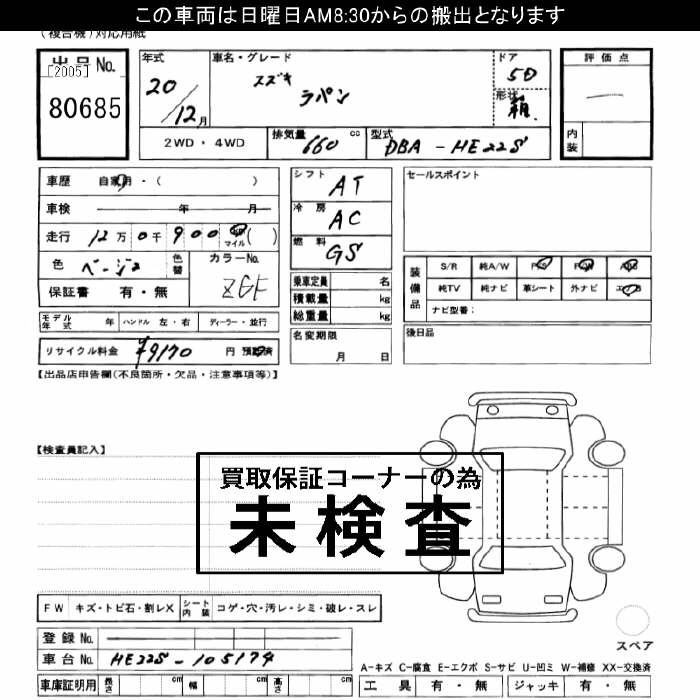 この車両は日曜日AM8:30からの搬出となります
(複合機)対応用紙
出品No.
[2005]
80685
年式
20/12月
車名・グレード
スズキ
ラパン
ドア
5D
形状
箱
評価点
—
内装
2WD・4WD
排気量
660
cc
型式
DBA-HE22S
車歴 自家用・( )
車検 年 月
走行 12万0千900 km マイル ( )
色 ベージュ
色替
カラーNo.
ZGF
保証書 有・無
シフト
AT
冷房
AC
燃料
GS
乗車定員 名
積載量 kg
総重量 kg
名変期限
月 日
セールスポイント
装備品
S/R 純A/W P/S P/W ABS
純TV 純ナビ 革シート 外ナビ エアB
ナビ型番:
後日品
モデル年式 年 ハンドル 左・右 ディーラー・並行
リサイクル料金 ¥9170 円 預託済
【出品店申告欄(不良箇所・欠品・注意事項等)】
【検査員記入】
買取保証コーナーの為
未検査
FW キズ・トビ石・割レX シート内装 コゲ・穴・汚レ・シミ・破レ・スレ
登録No.
車台No. HE22S-105174
車庫証明用 長さ cm 幅 cm 高さ cm
スペア
A-キズ C-腐食 E-エクボ S-サビ U-凹ミ W-補修 XX-交換済
工具 有・無 ジャッキ 有・無